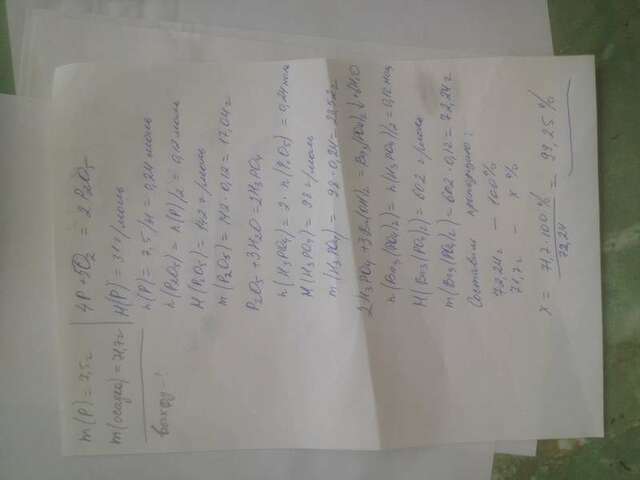 m(P) = 7,5г
m(осадка) = 71,7г
4P + 5O2 = 2P2O5
M(P) = 31 г/моль
n(P) = 7,5/31 = 0,24 моль
n(P2O5) = n(P)/2 = 0,12 моль
M(P2O5) = 142 г/моль
m(P2O5) = 142 · 0,12 = 17,04 г
P2O5 + 3H2O = 2H3PO4
n(H3PO4) = 2 · n(P2O5) = 0,24 моль
M(H3PO4) = 98 г/моль
m(H3PO4) = 98 · 0,24 = 23,52 г
2H3PO4 + 3Ba(OH)2 = Ba3(PO4)2↓ + 6H2O
n(Ba3(PO4)2) = n(H3PO4)/2 = 0,12 моль
M(Ba3(PO4)2) = 602 г/моль
m(Ba3(PO4)2) = 602 · 0,12 = 72,24 г
Составим пропорцию:
72,24 г — 100%
71,7 г — x %
x = 71,7 · 100% / 72,24 = 99,25 %